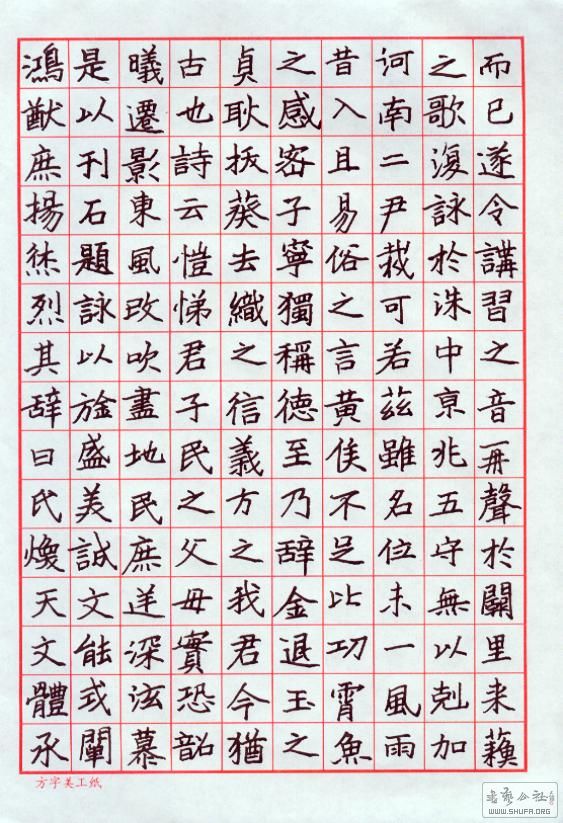 而已遂令講習之音再聲於闕里来蘓
之歌復詠於洙中京兆五守無以剋加
河南二尹裁可若茲雖名位未一風雨
昔入且易俗之言黃侯不足比功霄魚
之感密子寧獨稱德至乃辞金退玉之
貞耿拔葵去織之信義方之我君今猶
古也詩云愷悌君子民之父母實恐韶
曦遷影東風改吹盡地民庶逆深泫慕
是以刊石題詠以旍盛美誠文能式闡
鴻猷庶揚烋烈其辞曰氏煥天文體承
方字美工纸
书艺公社
WWW.SHUFA.ORG